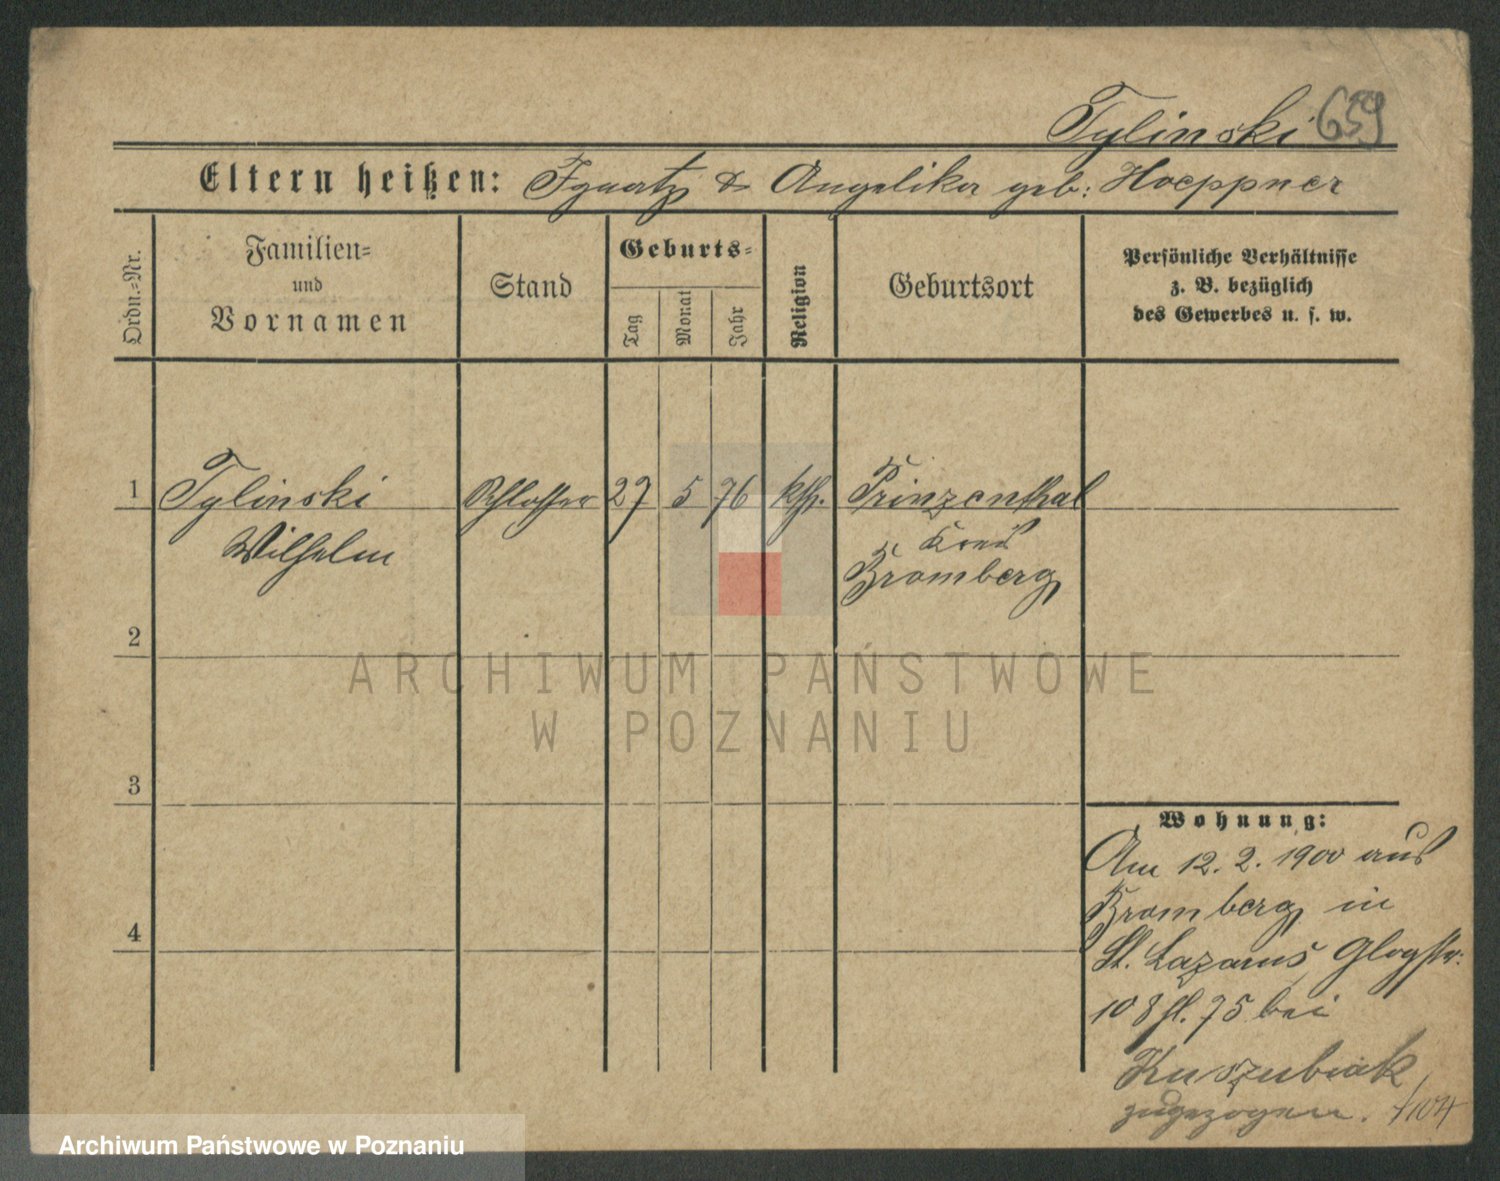 Tylinski 659
Eltern heißen: Ignatz & Angelika geb: Hoeppner
Ordn.-Nr.
Familien-
und
Vornamen
Stand
Geburts-
Tag
Monat
Jahr
Religion
Geburtsort
Persönliche Verhältnisse
z. B. bezüglich
des Gewerbes u. s. w.
1 Tylinski Schlosser 27 5 76 kth. Prinzenthal
Wilhelm Kreis
Bromberg
2
3
4
Wohnung:
Am 12.2.1900 aus
Bromberg in
St. Lazarus Glogstr:
108 75 bei
Kuszubiak
zugezogen.
ARCHIWUM PAŃSTWOWE
W POZNANIU
Archiwum Państwowe w Poznaniu